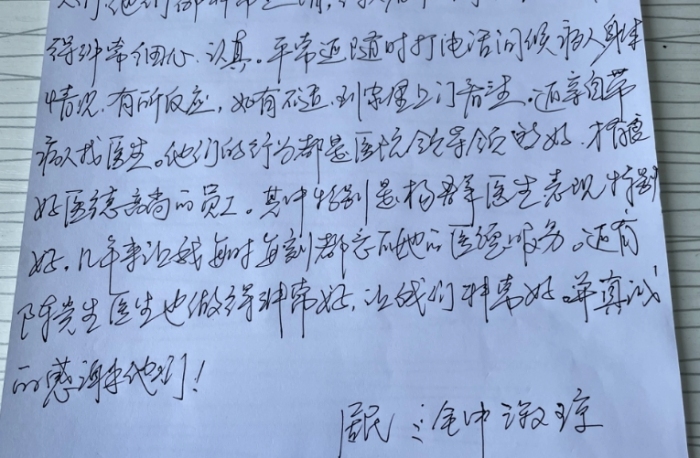 得非常细心、认真。平常还随时打电话问候病人身体
情况，有所反应，如有不适，到家里上门看望。还亲自带
病人找医生。他们的行为都是医院领导领的好，才有
好医德高尚的员工。其中特别是杨医生表现特别
好，几年来让我每时每刻都忘不了她的医德服务。还有
陈贵生医生也做得非常好，让我们非常好。并真诚
的感谢他们！
居民：金中